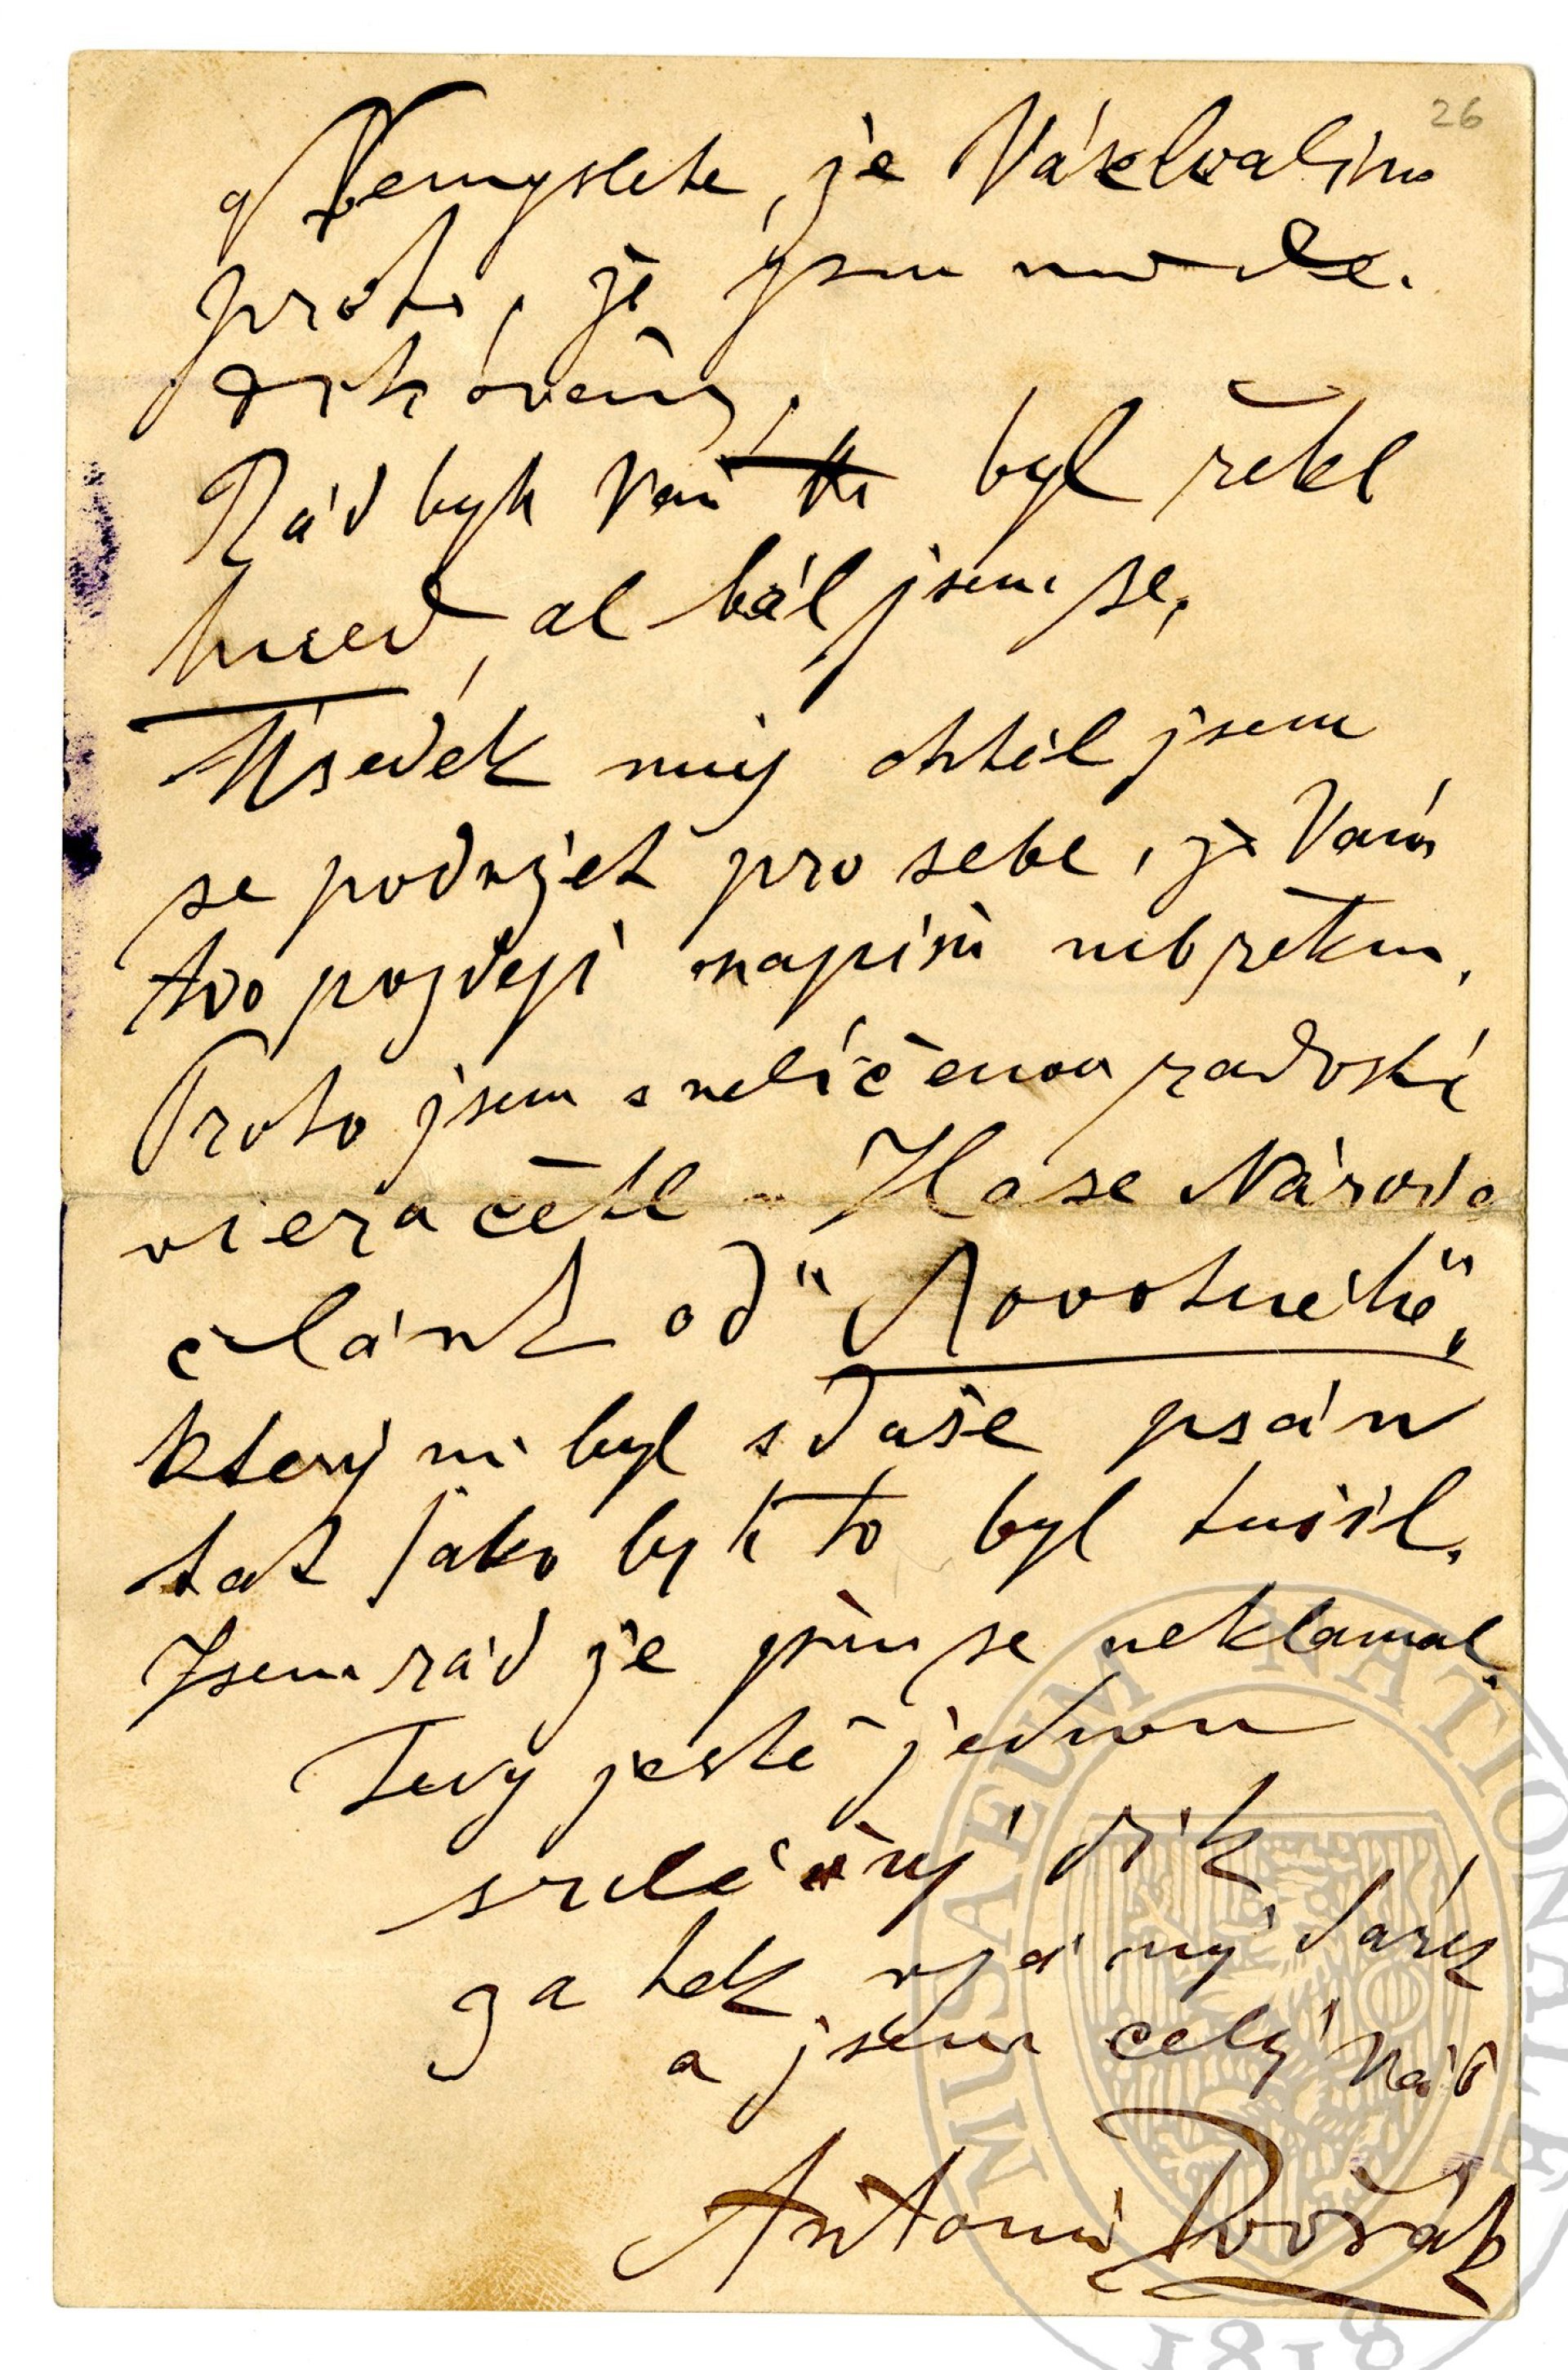 26
Nemyslete, že Vás chválím
proto, že jsem na de-
dikován,
Rád bych Vám byl řekl
hned, al bál jsem se,
Úsudek můj chtěl jsem
se podržet pro sebe, že Vám
to později napíši neb řeknu,
Proto jsem s nelíčenou radostí
včera četl Hlase Národa
článek od "Novotného",
který mi byl s duše psán
tak jako bych to byl tušil.
Jsem rád že jsem se neklamal.
Tedy ještě jednou
srdečný dík
za tak vzácný dárek
a jsem celý Váš
Antonín Dvořák
MUSAEUM NATIONALE
1818